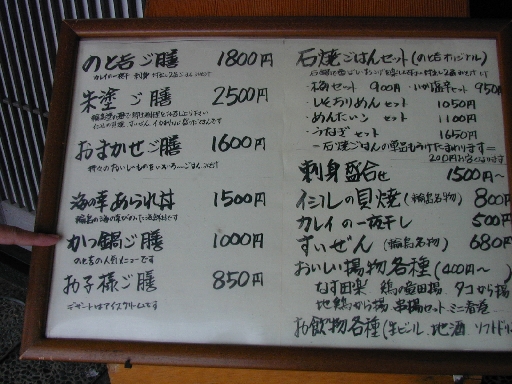 のと吉ご膳 1800円
朱塗ご膳 2500円
おまかせご膳 1600円
海の幸あられ丼 1500円
かつ鍋ご膳 1000円
のと吉の人気メニューです
お子様ご膳 850円
デザートはアイスクリームです
石焼ごはんセット(のと吉オリジナル)
梅セット 900円 いか塩辛セット 950円
しそおりめんセット 1050円
めんたいこセット 1100円
うなぎセット 1650円
刺身盛合せ 1500円〜
イシルの貝焼(輪島名物) 800円
カレイの一夜干し 500円
すいぜん(輪島名物) 680円
おいしい揚物各種(400円〜)
なす田楽 鶏の竜田揚 タコから揚
地鶏から揚 串揚セット ミニ春巻
お飲物各種(生ビール、地酒 ソフトドリ